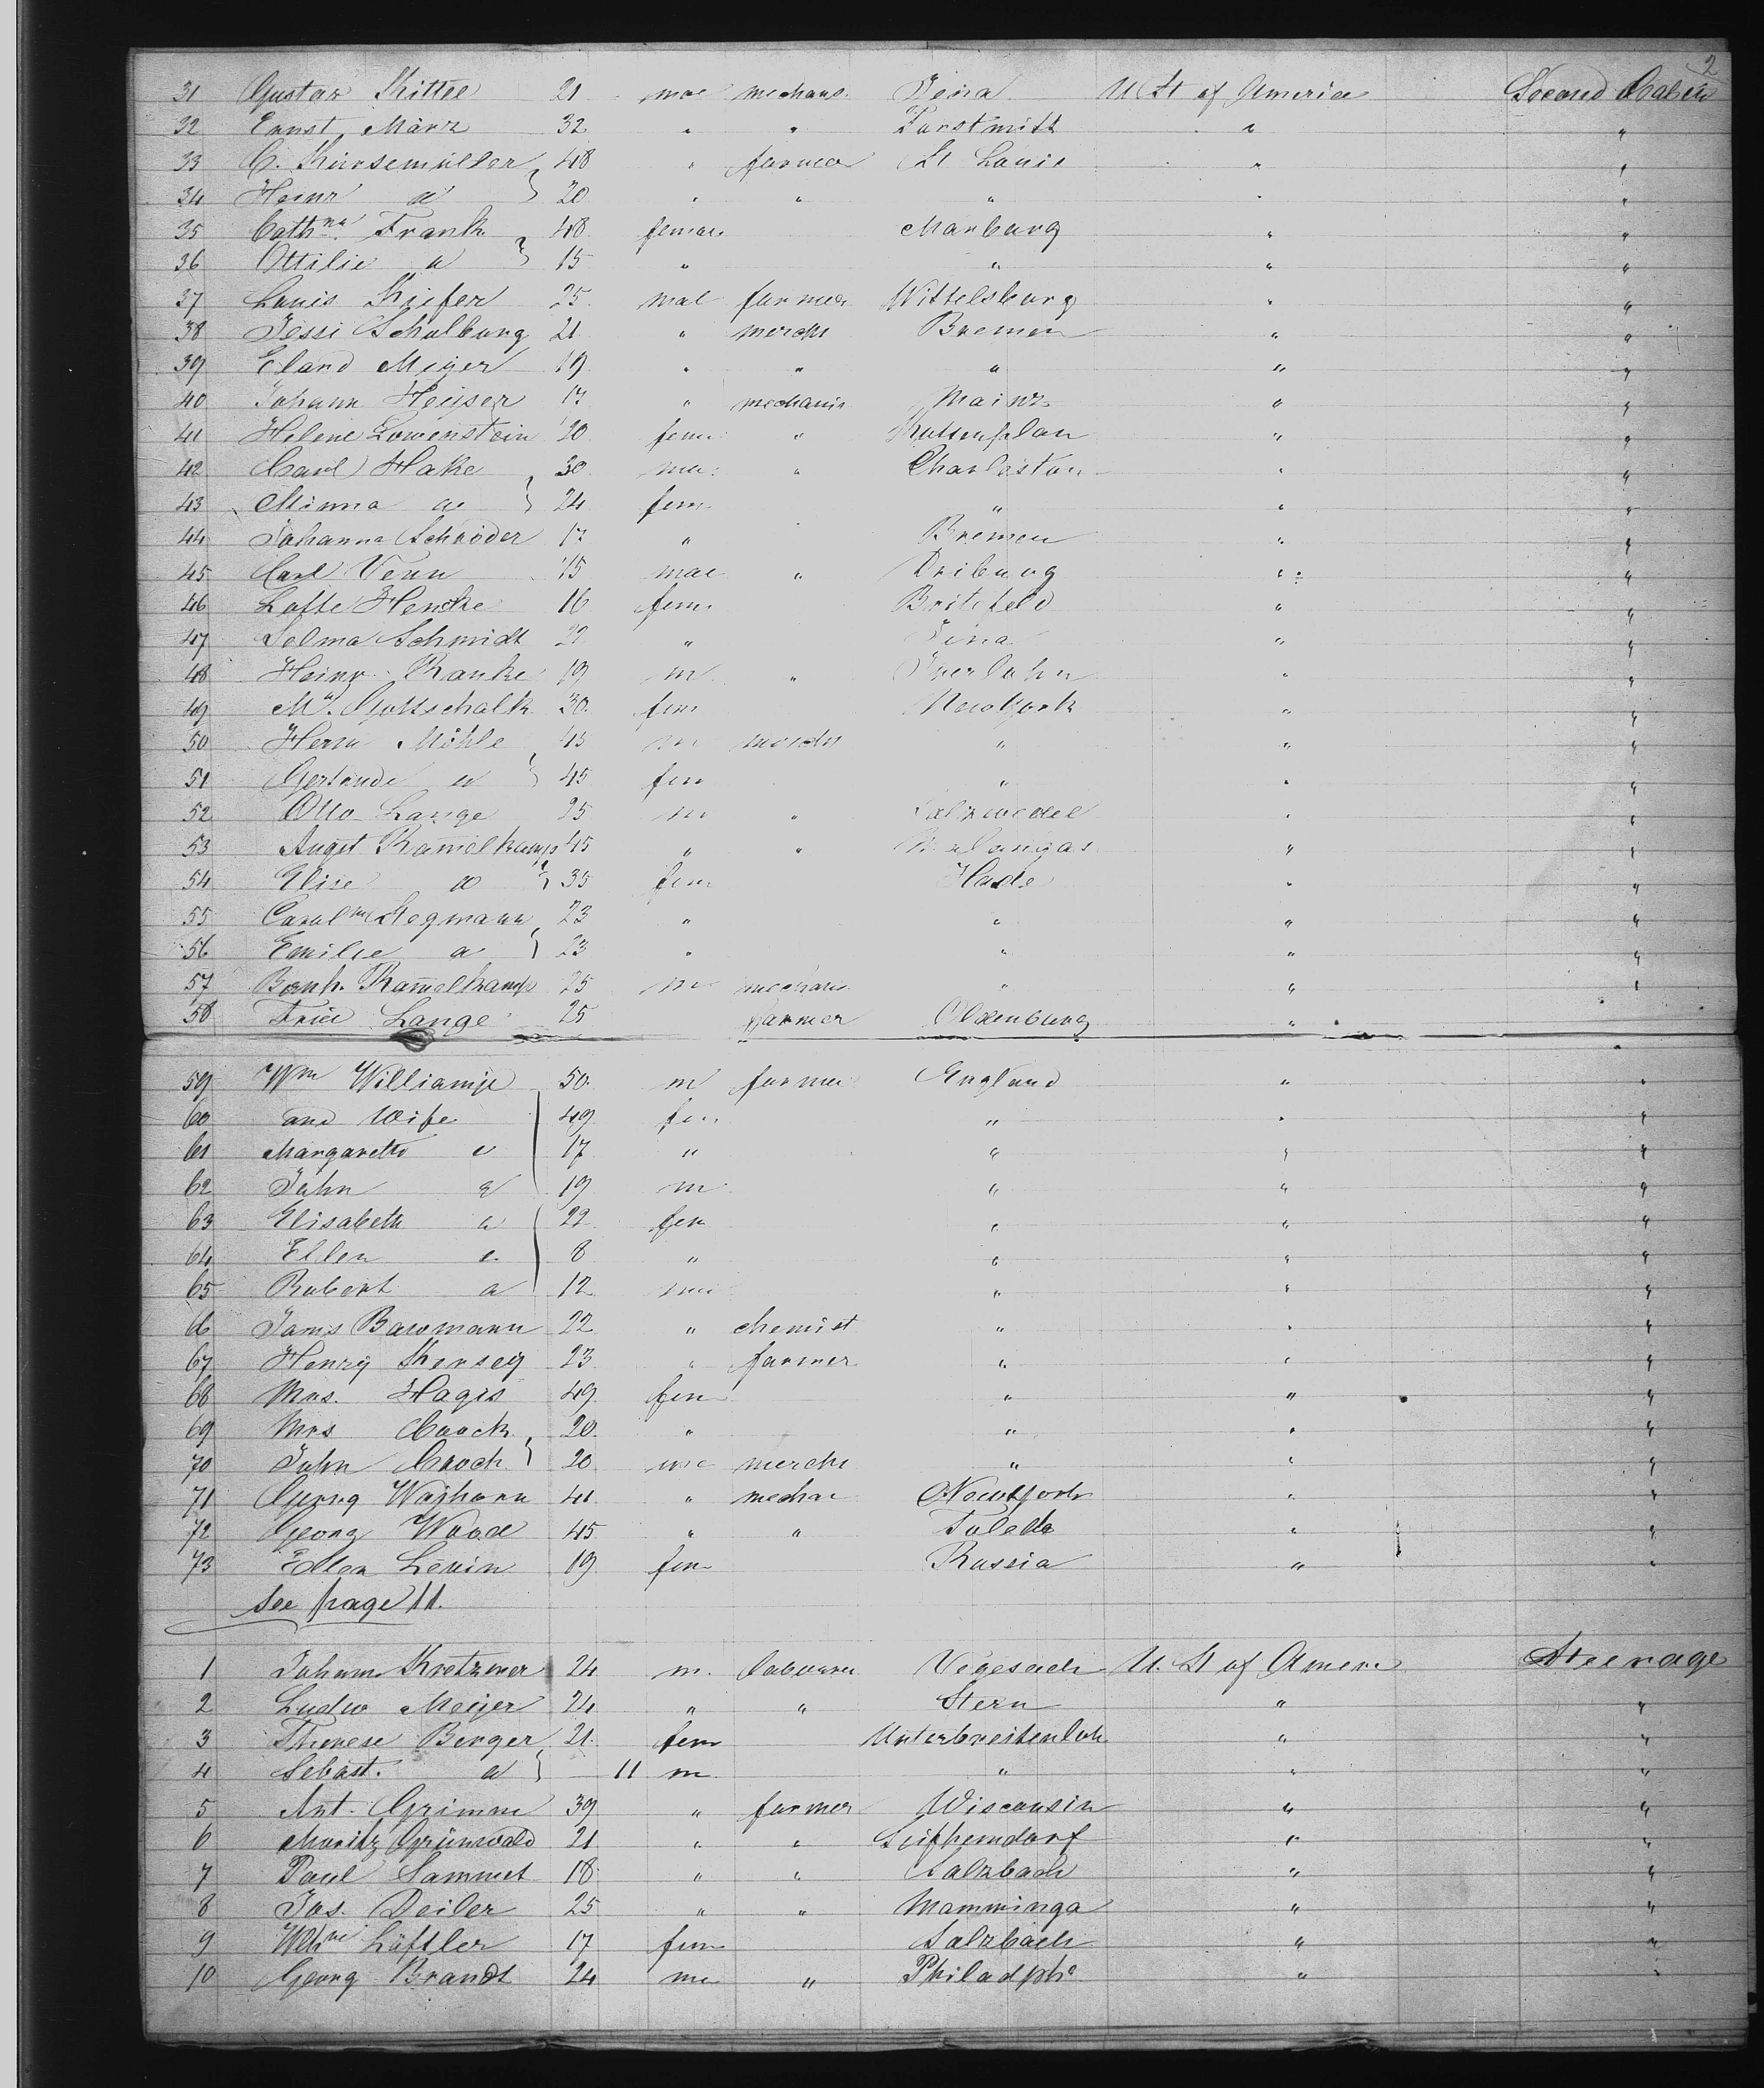 2
31 Gustav Kittel 21 mal mechanc. Jena U St of America Second Cabin
32 Ernst März 32 " " " "
33 C. Kürsemüller 48 " farmer St Louis " "
34 Heinr a 20 " " " " "
35 Cathna Frank 48 femal. Marburg " "
36 Ottilie a 15 " " " "
37 Louis Kiefer 25 mal farmer Wittelsburg " "
38 Jessi Schalburg 21 " mercht Bremen " "
39 Eland Meyer 19 " " " " "
40 Johann Heuser 17 " mechanic Mainz " "
41 Helene Lowenstein 20 fem " " "
42 Carl Hake 30 ma " Charleston " "
43 Minna a 24 fem. " " "
44 Johanna Schröder 17 " Bremen " "
45 Carl Venn 15 mal " Driburg " "
46 Lotte Hencke 16 fem. " "
47 Selma Schmidt 22 " Jena " "
48 Heinr. Ranke 19 m " Iserlohn " "
49 Ma. Gottschalk 30. fem New York " "
50 Herm Möhle 45 m mercht " " "
51 Gertrude a 45 fem " " "
52 Otto Lange 25 m " Salzwedel " "
53 Augst Ramelkamp 45 " " " "
54 Elise a 35 fem " "
55 Carolne Stegmann 23 " " " "
56 Emilie a 23 " " " "
57 Bernh. Ramelkamp 25 m mechanic " " "
58 Lange 25 farmer Oldenburg "
59 Wm Williams 50. m farmer England " "
60 and Wife 49 fem " " "
61 Margarette a 17 " " " "
62 John a 19 m " " "
63 Elisabeth a 22 fem " " "
64 Ellen a 8 " " " "
65 Robert a 12 ma " " "
66 James Bowmann 22 " chemist " " "
67 Henry Kersey 23 " farmer " " "
68 Mrs. Hagis 49 fem " " "
69 Mrs Croch 20. " " " "
70 John Crooch 20 ma mercht " " "
71 Georg Waghorn 41 " mechan New York " "
72 Georg Wood 45 " " Toledo " "
73 Ellen Levin 19 fem Russia " "
see page 11.
1 Johann Kretzmer 24 m. labourer Vegesack U. St of Ameri Steerage
2 Ludw Meyer 24 " " Stern " "
3 Therese Berger 21. fem Unterbreitenloh " "
4 Sebast. a 11 m " " "
5 Ant. Grimm 39 " farmer Wisconsin " "
6 Moritz Grünwald 21 " " " "
7 Paul Sammet 18 " " Salzbach " "
8 Jos. Deiler 25 " " Mamminga " "
9 Wilhne Löffler 17 fem Salzbach " "
10 Georg Brandt 24 ma " Philadpha " "